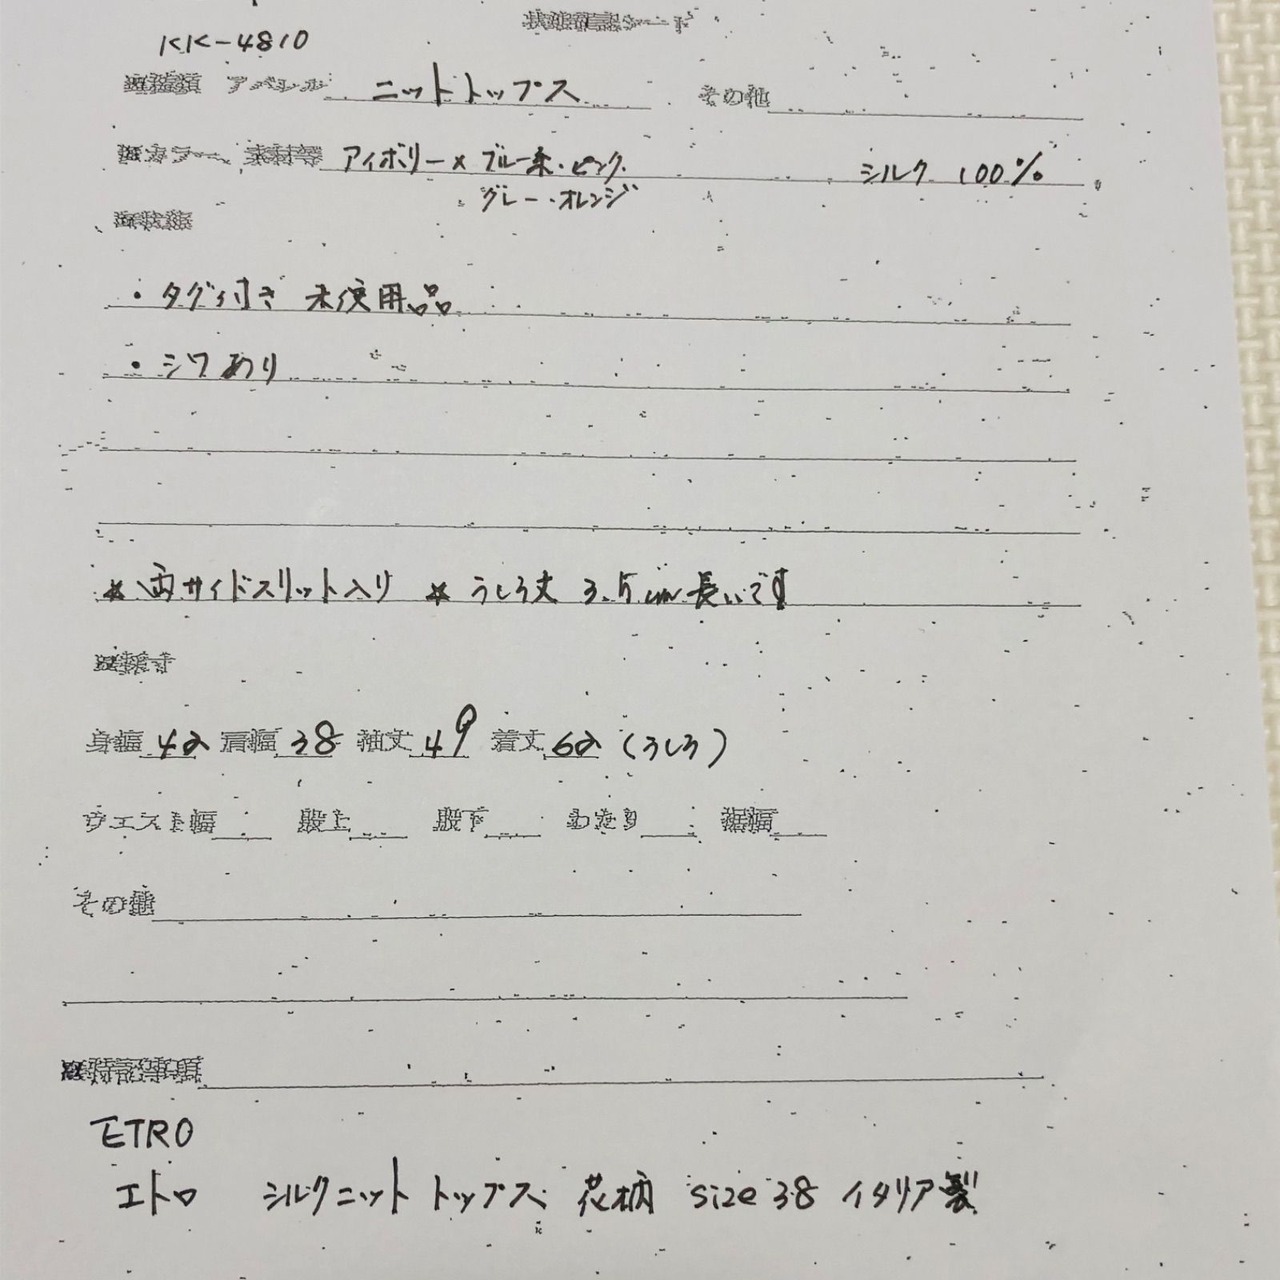 状態確認シート
KK-4810
■種類 アパレル ニットトップス その他
■カラー、素材等 アイボリー×ブルー系・ピンク・ シルク 100%
グレー・オレンジ
■状態
・タグ付き 未使用品
・シワあり
* 両サイドスリット入り * うしろ丈 3.5cm長いです
■採寸
身幅 42 肩幅 38 袖丈 49 着丈 62 (うしろ)
ウエスト幅 股上 股下 わたり 裾幅
その他
■特記事項
ETRO
エトロ シルクニット トップス 花柄 size 38 イタリア製